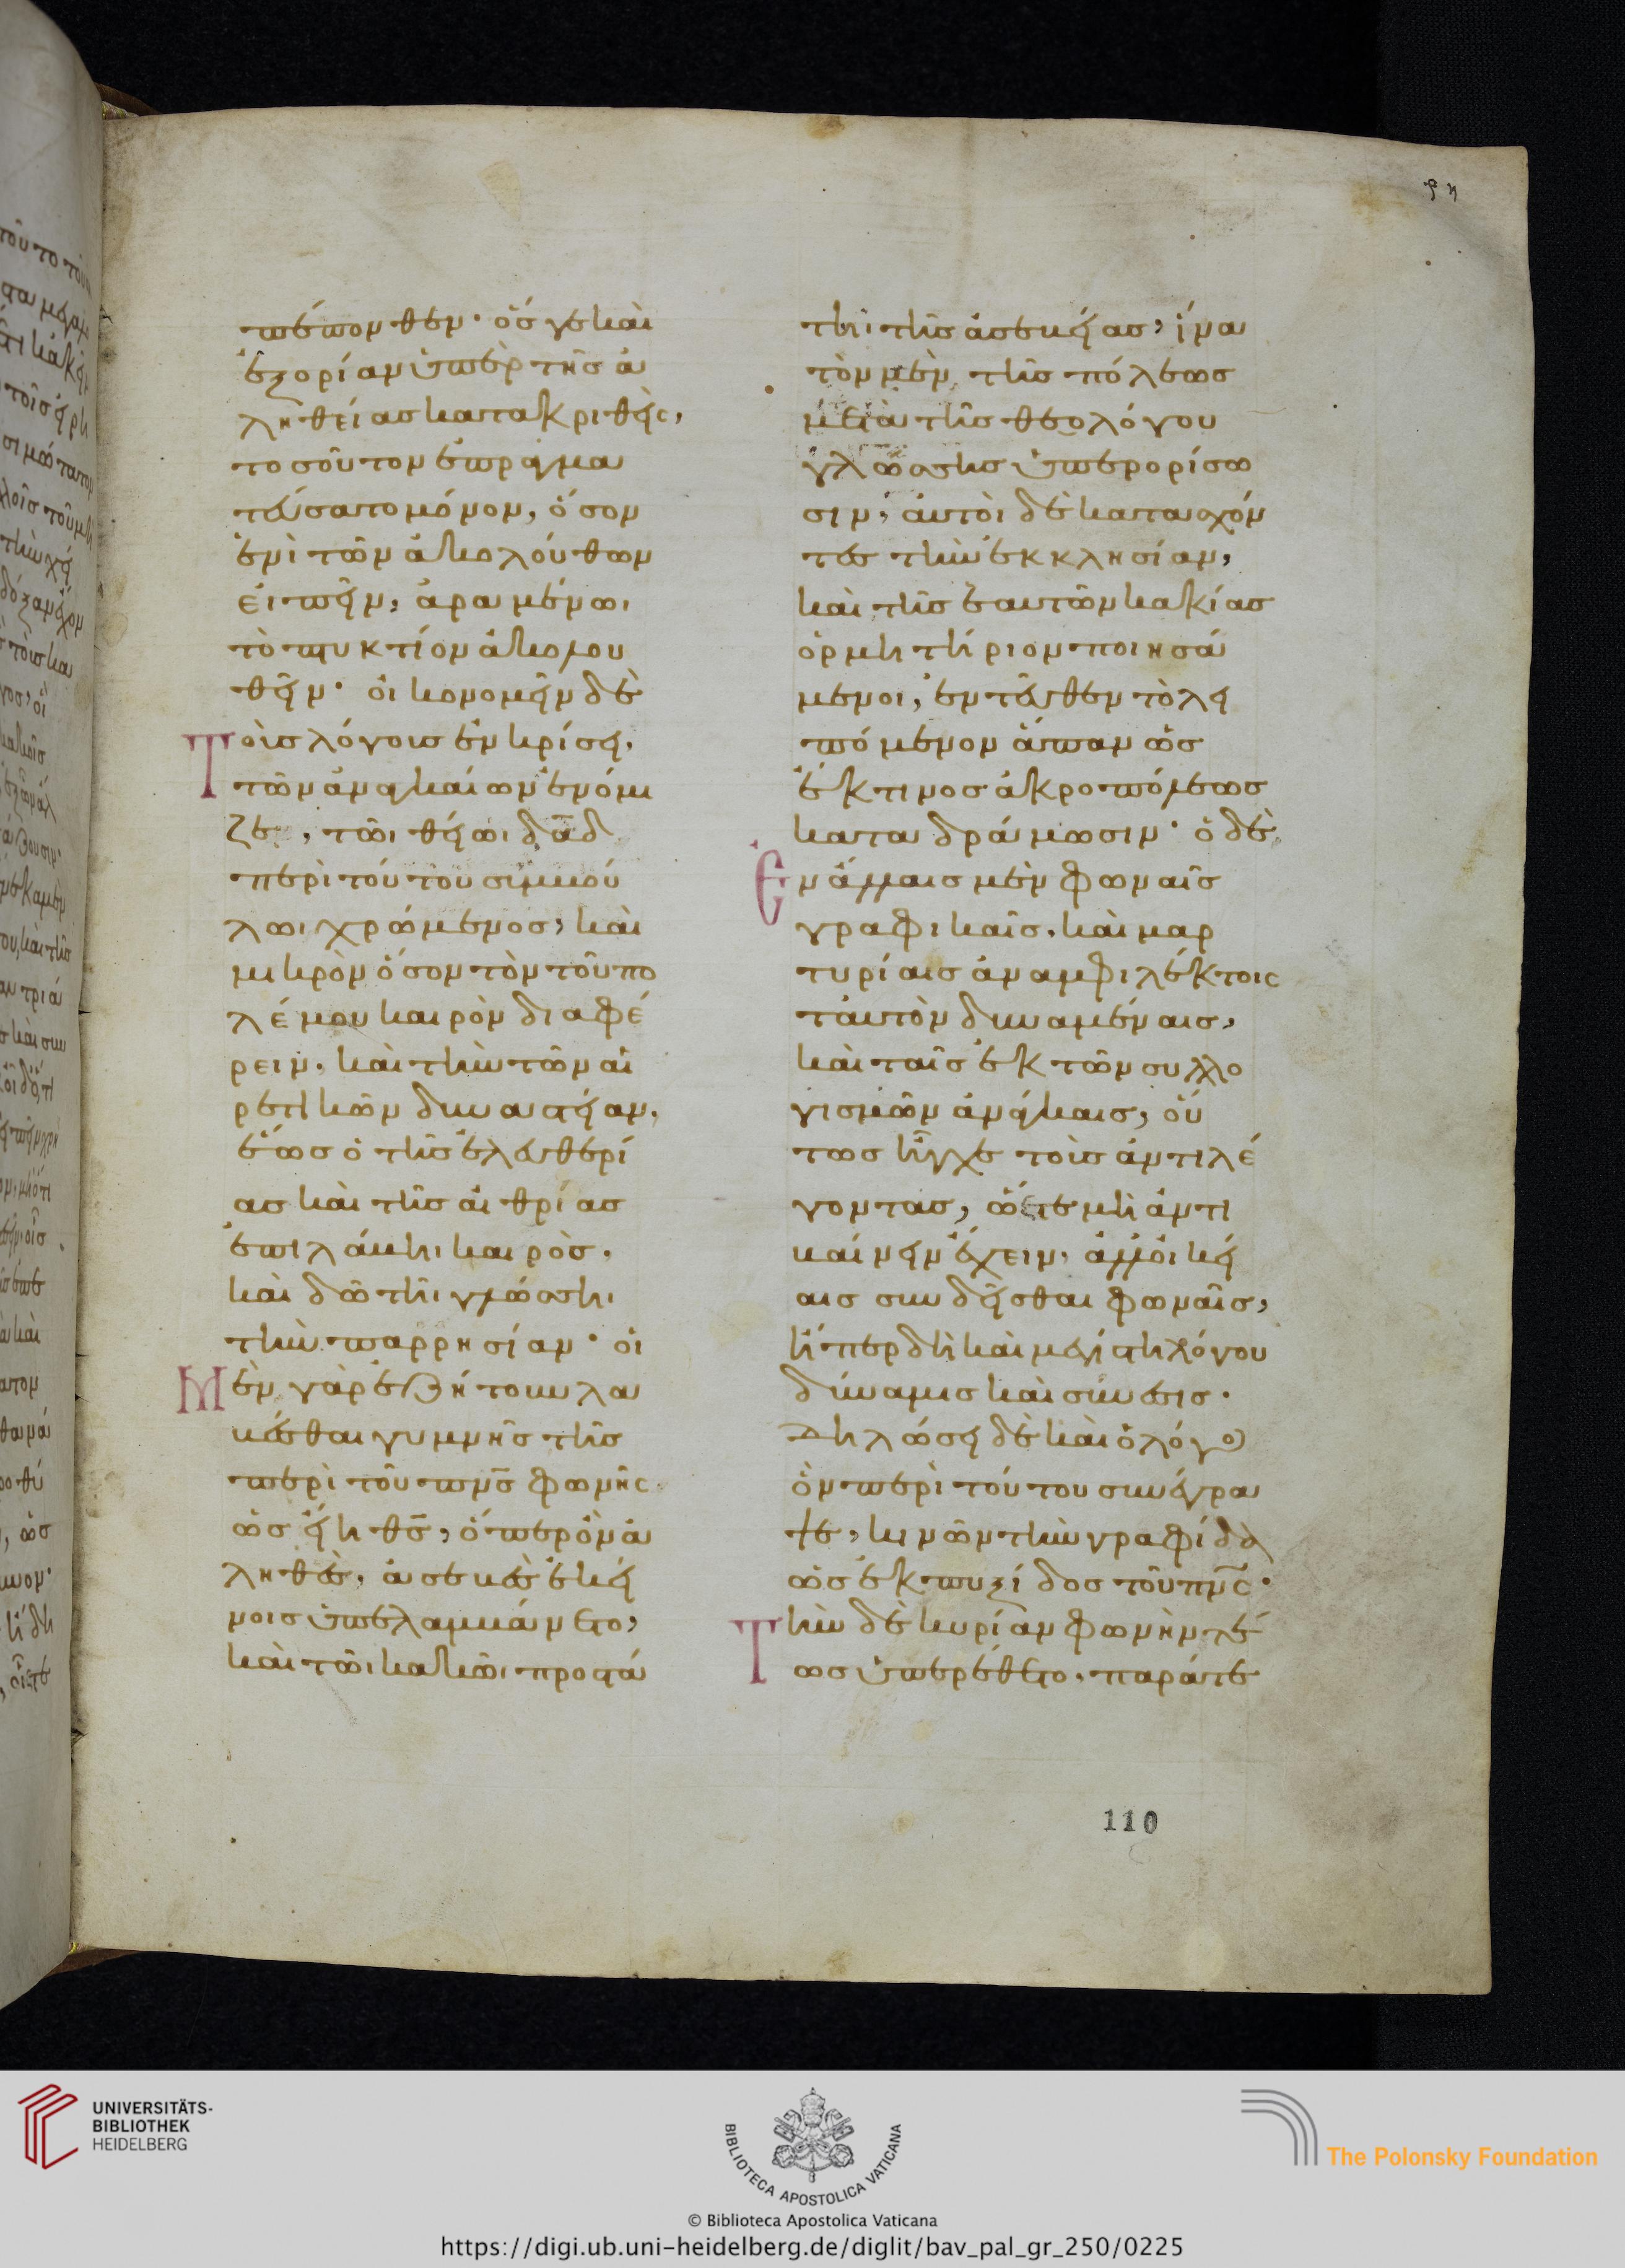 ϟη
πέπονθεν· ὅς γε καὶ
ἐξορίαν ὑπὲρ τῆς ἀ
ληθείας κατακριθεὶς,
τοσοῦτον ἐπραγμα
τεύσατο μόνον, ὅσον
ἑνὶ τῶν ἀκολούθων
εἰπεῖν, ἀραμένωι
τὸ πυκτίον ἀκολου
θεῖν· οἰκονομεῖν δὲ
Τοὺς λόγους ἐν κρίσει,
τῶν ἀναγκαίων ἐνόμι
ζε, τῶι θείωι δᾱδ
περὶ τούτου συμβού
λωι χρώμενος, καὶ
μικρὸν ὅσον τὸν τοῦ πο
λέμου καιρὸν διαφέ
ρειν, καὶ τὴν τῶν αἱ
ρετικῶν δυναστείαν,
ἕως ὁ τῆς ἐλευθερί
ας καὶ τῆς αἰθρίας
ἐπιλάβηι καιρὸς.
καὶ δῶ τῆι γλώσσηι
τὴν παρρησίαν· οἱ
Μὲν γὰρ ἐζήτουν λα
βέσθαι γυμνῆς τῆς
περὶ τοῦ πνς̄ φωνῆς
ὡς εἴη θς̄, ὅπερ ὂν ἀ
ληθὲς, ἀσεβὲς ἐκεί
νοις ὑπελαμβάνετο,
καὶ τῶι κακῶι προστά
τηι τῆς ἀσεβείας, ἵνα
τὸν μὲν τῆς πόλεως
μετὰ τῆς θεολόγου
γλώσσης ὑπερορίσω
σιν, αὐτοὶ δὲ κατασχόν
τες τὴν ἐκκλησίαν,
καὶ τῆς ἑαυτῶν κακίας
ὁρμητήριον ποιησά
μενοι, ἐντεῦθεν τὸ λει
πόμενον ἅπαν ὡς
ἔκ τινος ἀκροπόλεως
καταδράμωσιν· ὁ δὲ
Ἐν ἄλλαις μὲν φωναῖς
γραφικαῖς, καὶ μαρ
τυρίαις ἀναμφιλέκτοις
ταυτὸν δυναμέναις,
καὶ ταῖς ἐκ τῶν συλλο
γισμῶν ἀνάγκαις, οὕ
τως ἦγχε τοὺς ἀντιλέ
γοντας, ὥστε μὴ ἀντι
βαίνειν ἔχειν, ἀλλ' οἰκεί
αις συνδεῖσθαι φωναῖς,
ἥπερ δὴ καὶ μεγίστη λόγου
δύναμις καὶ σύνεσις.
Δηλώσει δὲ καὶ ὁ λόγος
ὃν περὶ τούτου συνέγρα
ψε, κινῶν τὴν γραφίδα
ὡς ἐκ πυξίδος τοῦ πνς̄·
Τὴν δὲ κυρίαν φωνὴν τέ
ως ὑπερέθετο, παρά τε
110
UNIVERSITÄTS-
BIBLIOTHEK
HEIDELBERG
BIBLIOTECA APOSTOLICA VATICANA
© Biblioteca Apostolica Vaticana
The Polonsky Foundation
https://digi.ub.uni-heidelberg.de/diglit/bav_pal_gr_250/0225